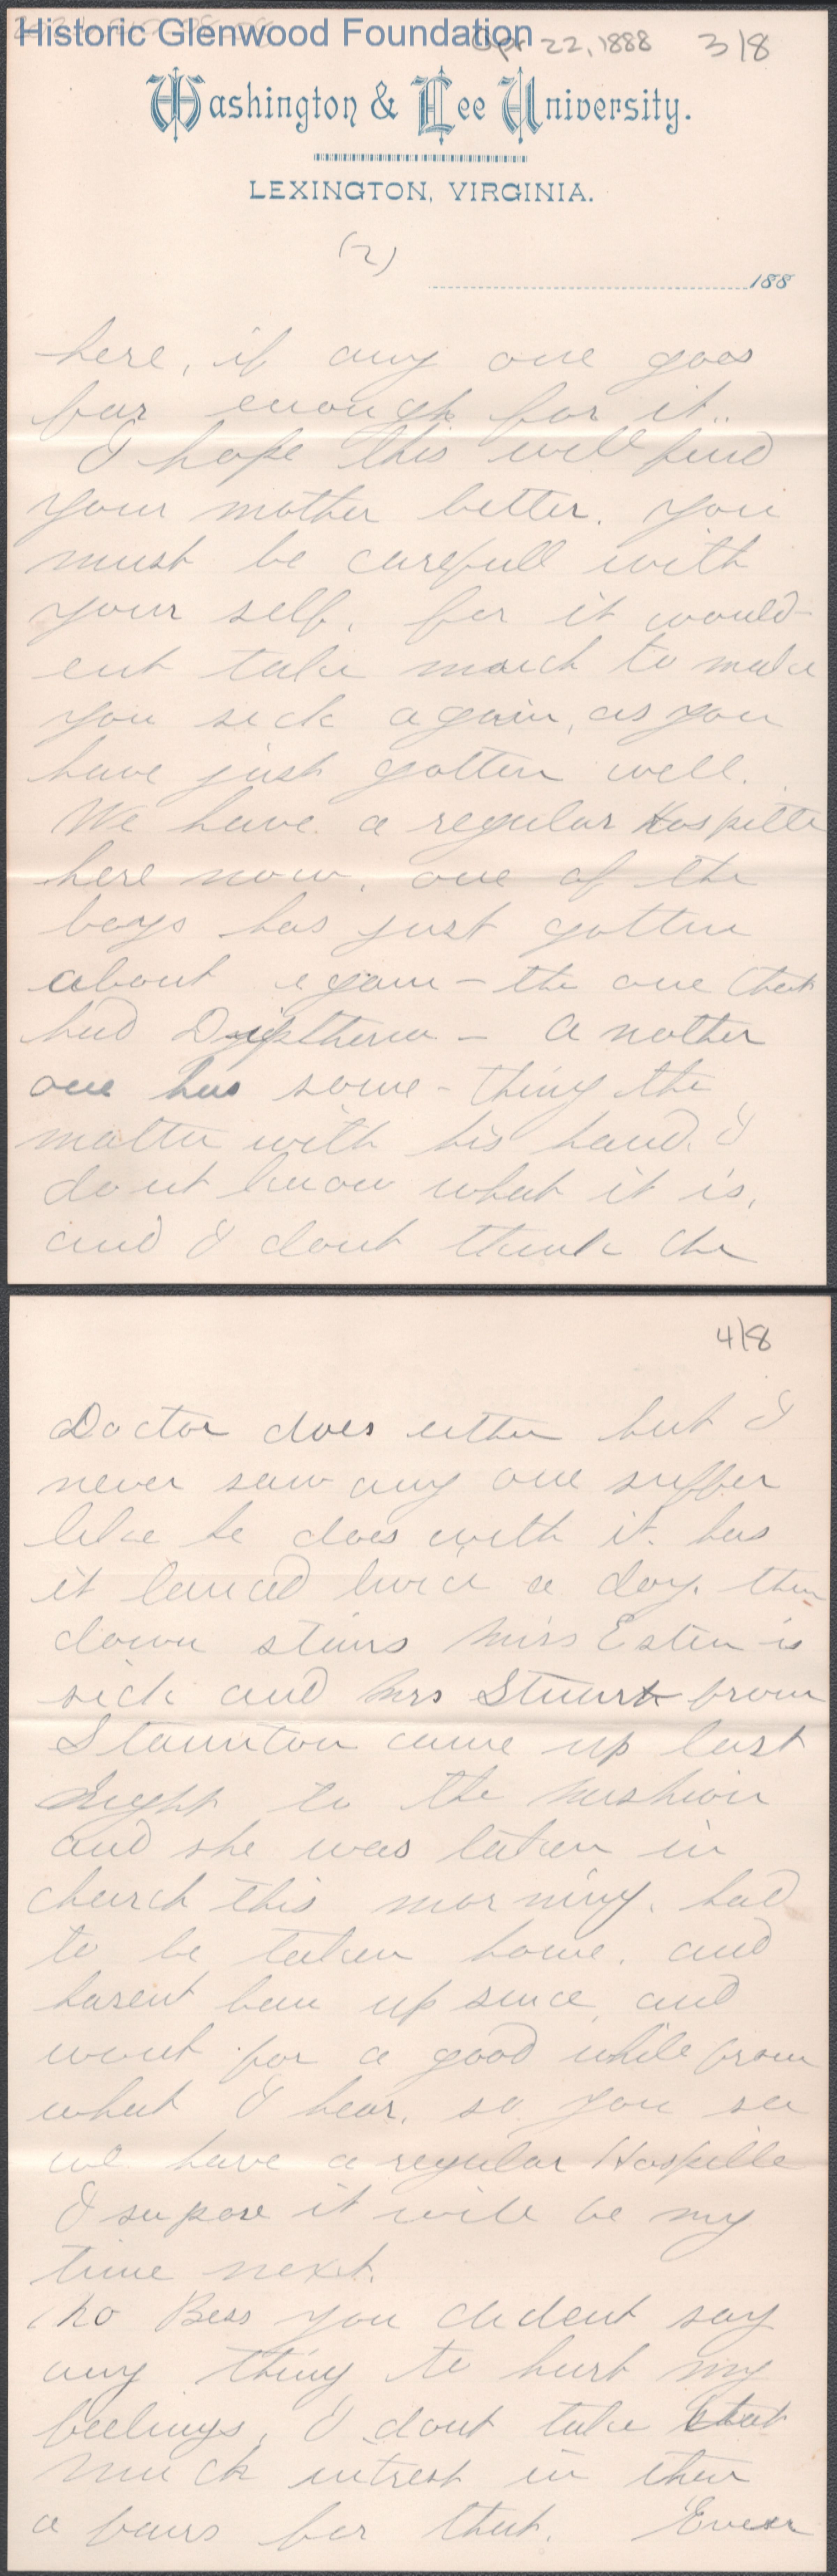 Historic Glenwood Foundation
Apr 22, 1888 3/8
Washington & Lee University.
LEXINGTON, VIRGINIA.
(2)
188
here, if any one goes
far enough for it..
I hope this will find
your mother better. you
must be carefull with
your self. for it would-
ent take much to make
you sick again, as you
have just gotten well.
We have a regular Hospitle
here now, one of the
boys has just gotten
about again - the one that
had Diptheria - A nother
one has some-thing the
matter with his hand. I
dont know what it is,
and I dont think the
4/8
Doctor does either but I
never saw any one suffer
like he does with it. has
it lanced twice a day. then
down stairs Miss Esten is
sick and Mrs Stuart from
Staunton came up last
night to the
and she was taken in
church this morning. had
to be taken home. and
hasent been up since, and
wont for a good while from
what I hear. so you see
we have a regular Hospitle
I supose it will be my
time next.
No Bess you dident say
any thing to hurt my
feelings, I dont take that
much intrest in their
a fairs for that. Ever